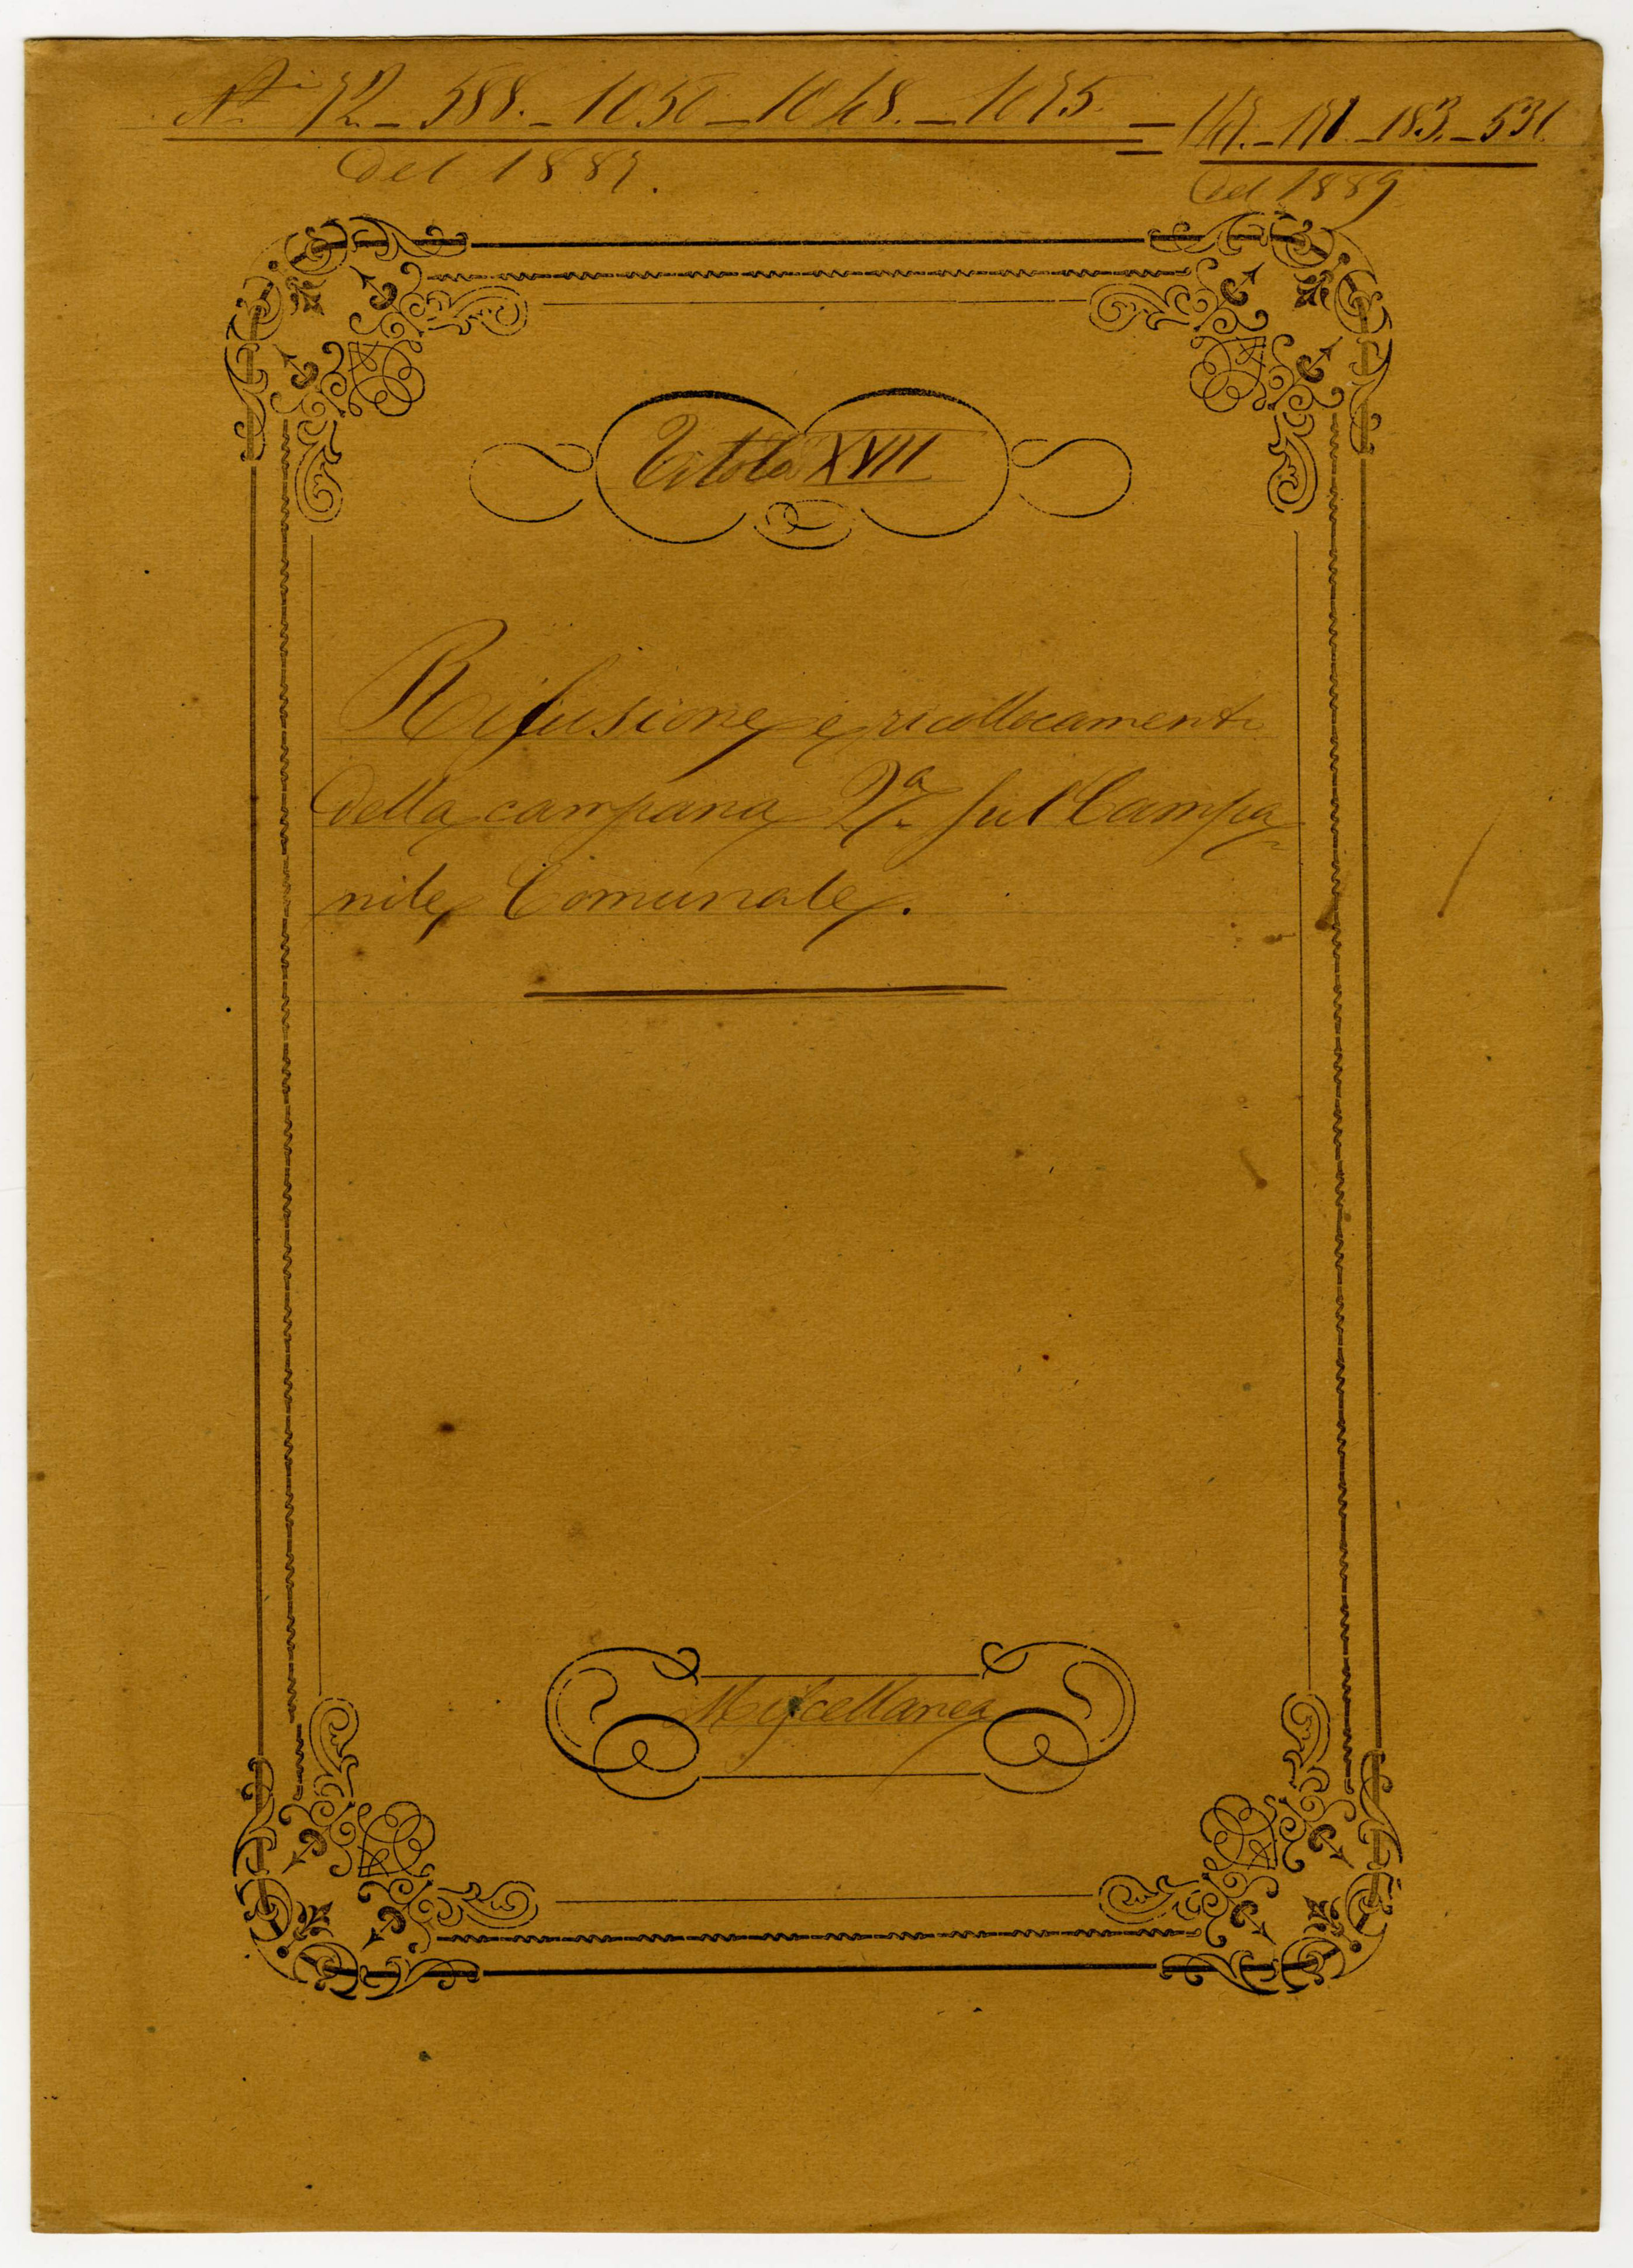 Ni 72 _ 588. _ 1050 _ 1048. _ 1075. = 147. _ 171. _ 183. _ 531.
del 1887. del 1889
Titolo XVII
Rifusione e ricollocamento
della campana 2a. sul Campa
nile Comunale.
Miscellanea